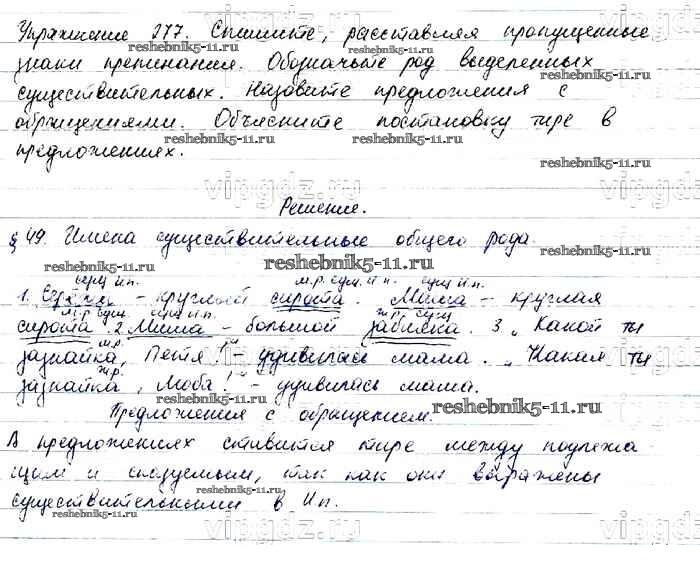 Упражнение 277. Спишите, расставляя пропущенные
знаки препинания. Обозначьте род выделенных
существительных. Назовите предложения с
обращениями. Объясните постановку тире в
предложениях.
Решение.
§ 49. Имена существительные общего рода.
сущ И п. м.р. сущ. И п. сущ И п.
1. Серёжа - круглый сирота. Миша - круглая
м.р. сущ. сущ И п. ж.р. сущ
сирота. 2. Миша - большой забияка. 3. „Какой ты
м.р.
зазнайка, Петя!" - удивилась мама. „Какая ты
ж.р.
зазнайка, Люба!" - удивилась мама.
Предложения с обращением.
В предложениях ставится тире между подлежа
щим и сказуемым, так как они выражены
существительными в И п.
reshebnik5-11.ru
vipgdz.ru